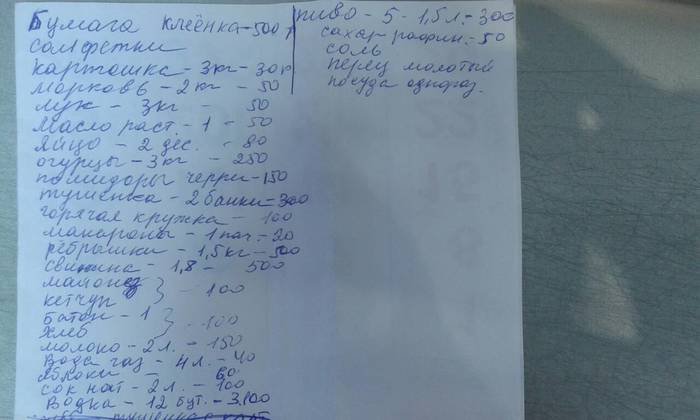 Бумага клеёнка - 500 р
салфетки
картошка - 3 кг - 30 р
морковь - 2 кг - 50
лук - 3 кг - 50
Масло раст. - 1 - 50
Яйцо - 2 дес. - 80
огурцы - 3 кг - 250
помидоры черри - 150
тушенка - 2 банки - 300
горячая кружка - 100
макароны - 1 пач. - 20
рёбрышки - 1,5 кг - 500
свинина - 1,8 - 500
майонез
кетчуп } - 100
Батон - 1
Хлеб } - 100
молоко - 2 л. - 150
Вода газ - 4 л. - 40
яблоки - 60
сок нат - 2 л. - 100
Водка - 12 бут. - 3000
пиво - 5 - 1,5 л. - 300
сахар рафин. - 50
соль
перец молотый
посуда однораз.